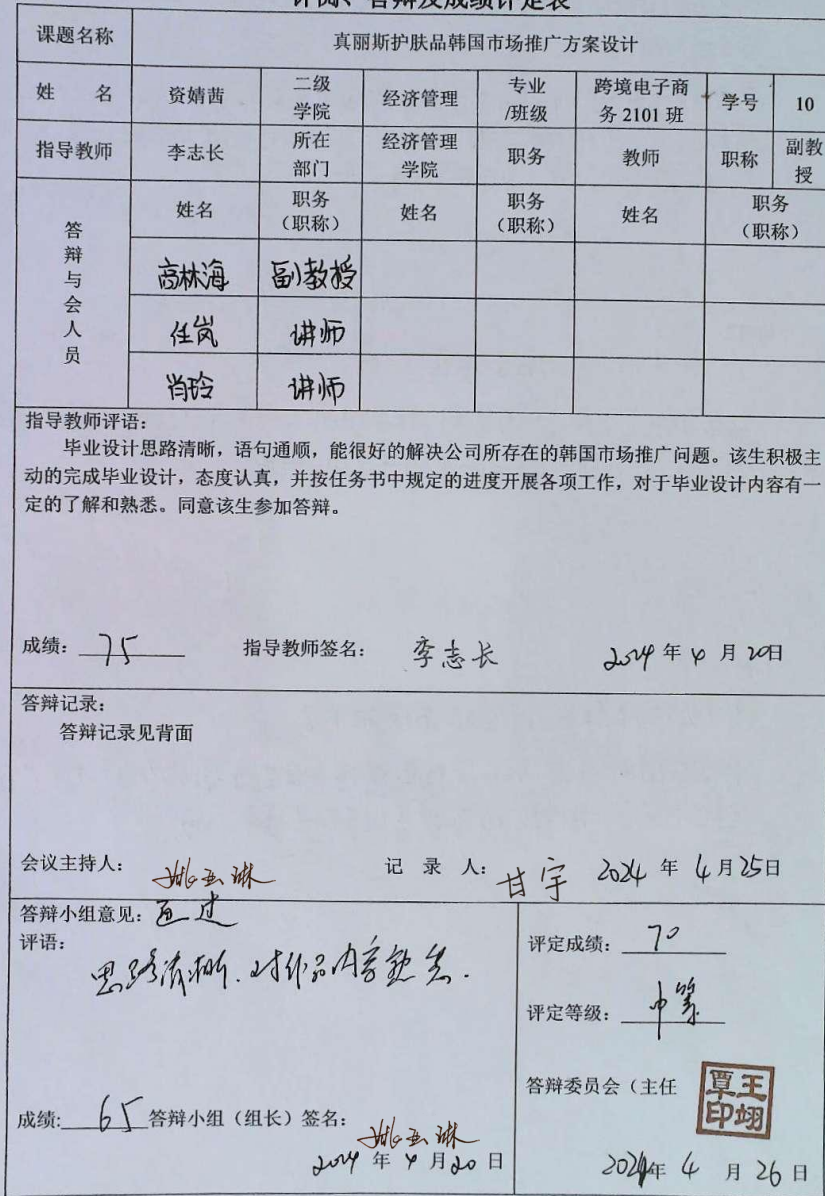 评阅、答辩及成绩评定表
课题名称 真丽斯护肤品韩国市场推广方案设计
姓 名 资婧茜 二级学院 经济管理 专业/班级 跨境电子商务2101班 学号 10
指导教师 李志长 所在部门 经济管理学院 职务 教师 职称 副教授
答辩与会人员 姓名 职务(职称) 姓名 职务(职称) 姓名 职务(职称)
高林海 副教授
任岚 讲师
肖玲 讲师
指导教师评语:
毕业设计思路清晰，语句通顺，能很好的解决公司所存在的韩国市场推广问题。该生积极主
动的完成毕业设计，态度认真，并按任务书中规定的进度开展各项工作，对于毕业设计内容有一
定的了解和熟悉。同意该生参加答辩。
成绩: 75 指导教师签名: 李志长 2024年4月20日
答辩记录:
答辩记录见背面
会议主持人: 姚亚琳 记 录 人: 甘宇 2024年4月25日
答辩小组意见: 通过
评语:
思路清晰.对作品内容熟悉.
成绩: 65 答辩小组（组长）签名: 姚亚琳
2024年4月20日
评定成绩: 70
评定等级: 中等
答辩委员会（主任
覃王印翊
2024年4月26日